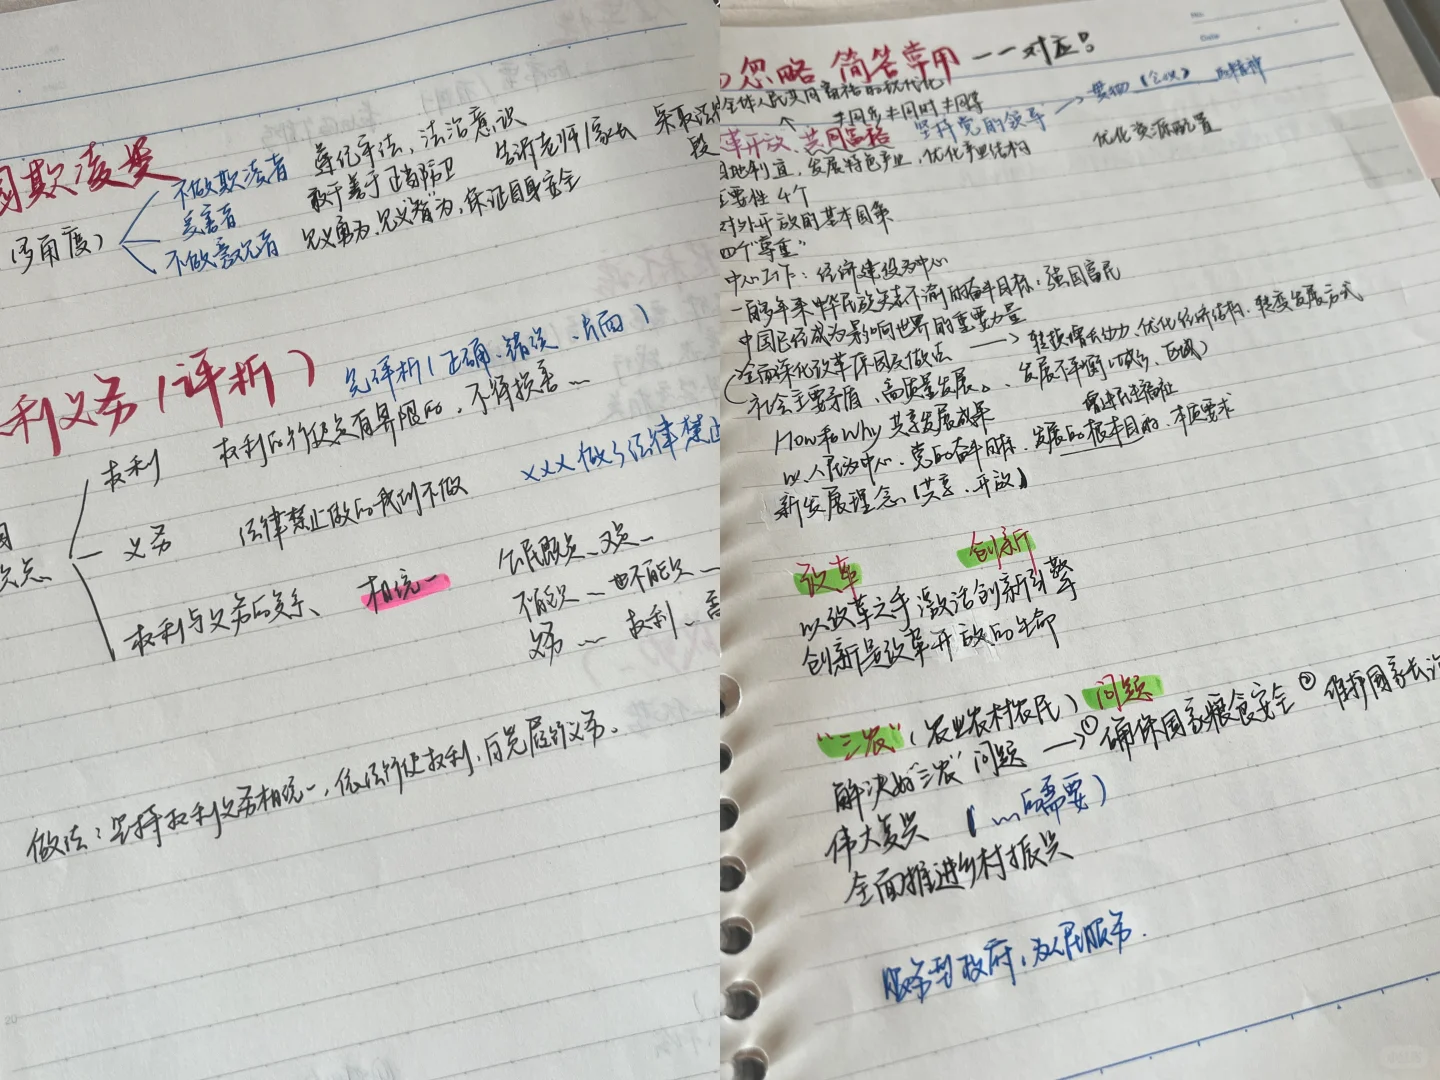 欺凌
(多角度)
不做欺凌者 遵纪守法、法治意识
受害者 敢于善于正当防卫 告诉老师/家长 采取法律
段
不做旁观者 见义勇为、见义"智"为,保证自身安全
利义务(评析) 先评析(正确、错误、片面)
权利 权利的行使是有界限的,不得损害...
义务 法律禁止做的我们不做 xxx做了法律禁止
权利与义务的关系、 相统一 公民既是...又是...
不能只...也不能只...
义务... 权利...
做法:坚持权利义务相统一,依法行使权利,自觉履行义务。
忽略 简答常用 一一对应!
全体人民共同富裕的现代化
共同享
革开放、共同富裕 坚持党的领导
因地制宜,发展特色产业,优化产业结构 优化资源配置
重要性 4个
对外开放的基本国策
四个"尊重"
中心工作:经济建设为中心
一百多年来中华民族矢志不渝的奋斗目标:强国富民
中国已经成为影响世界的重要力量
全面深化改革原因及做法 转换增长动力,优化经济结构,转变发展方式
社会主要矛盾,高质量发展。、发展不平衡(城乡、区域)
How和Why共享发展成果 增进民生福祉
以人民为中心、党的奋斗目标、发展的根本目的、本质要求
新发展理念(共享、开放)
改革 创新
以改革之手激活创新引擎
创新是改革开放的生命
"三农"(农业农村农民)问题
解决好"三农"问题 → ①确保国家粮食安全 ②维护国家长治
伟大复兴 (...的需要)
全面推进乡村振兴
服务型政府,为人民服务.